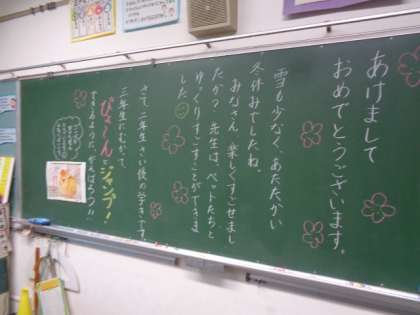 あけまして
おめでとうございます。
雪も少なく、あたたかい
冬休みでしたね。
みなさん、楽しくすごせまし
たか？先生は、ペットたちと
ゆっくりすごすことができま
した。
さて、二年生さい後の学きです。
三年生にむかって、
ぴょ〜んとジャンプ！
できるように、がんばろう！！